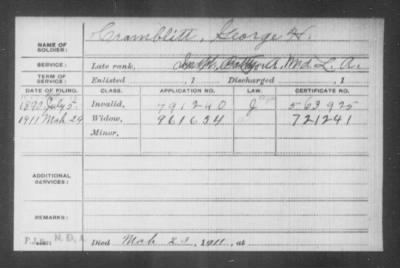 NAME OF SOLDIER: Cramblitt, George H.
SERVICE: Late rank, Batty, Md. L. A.
TERM OF SERVICE: Enlisted , 1 Discharged , 1
DATE OF FILING. CLASS. APPLICATION NO. LAW. CERTIFICATE NO.
1890 July 5 Invalid, 791240 563925
1911 Mch 29 Widow, 961634 721241
Minor,
ADDITIONAL SERVICES:
REMARKS:
Died Mch 23, 1911, at